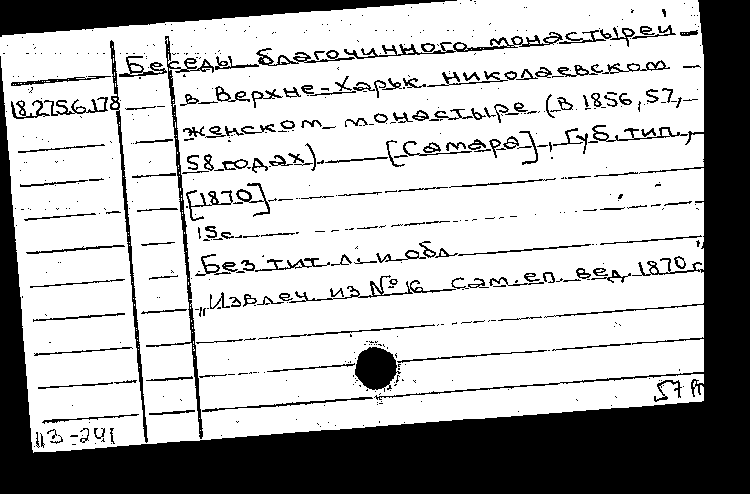 Беседы благочинного монастырей
18.275.6.178
в Верхне-Харьк. Николаевском
женском монастыре (в 1856, 57,
58 годах). [Самара], Губ. тип.,
[1870]
15 с.
Без тит. л. и обл.
"Извлеч. из № 16 Сам. еп. вед. 1870 г."
113-241
57